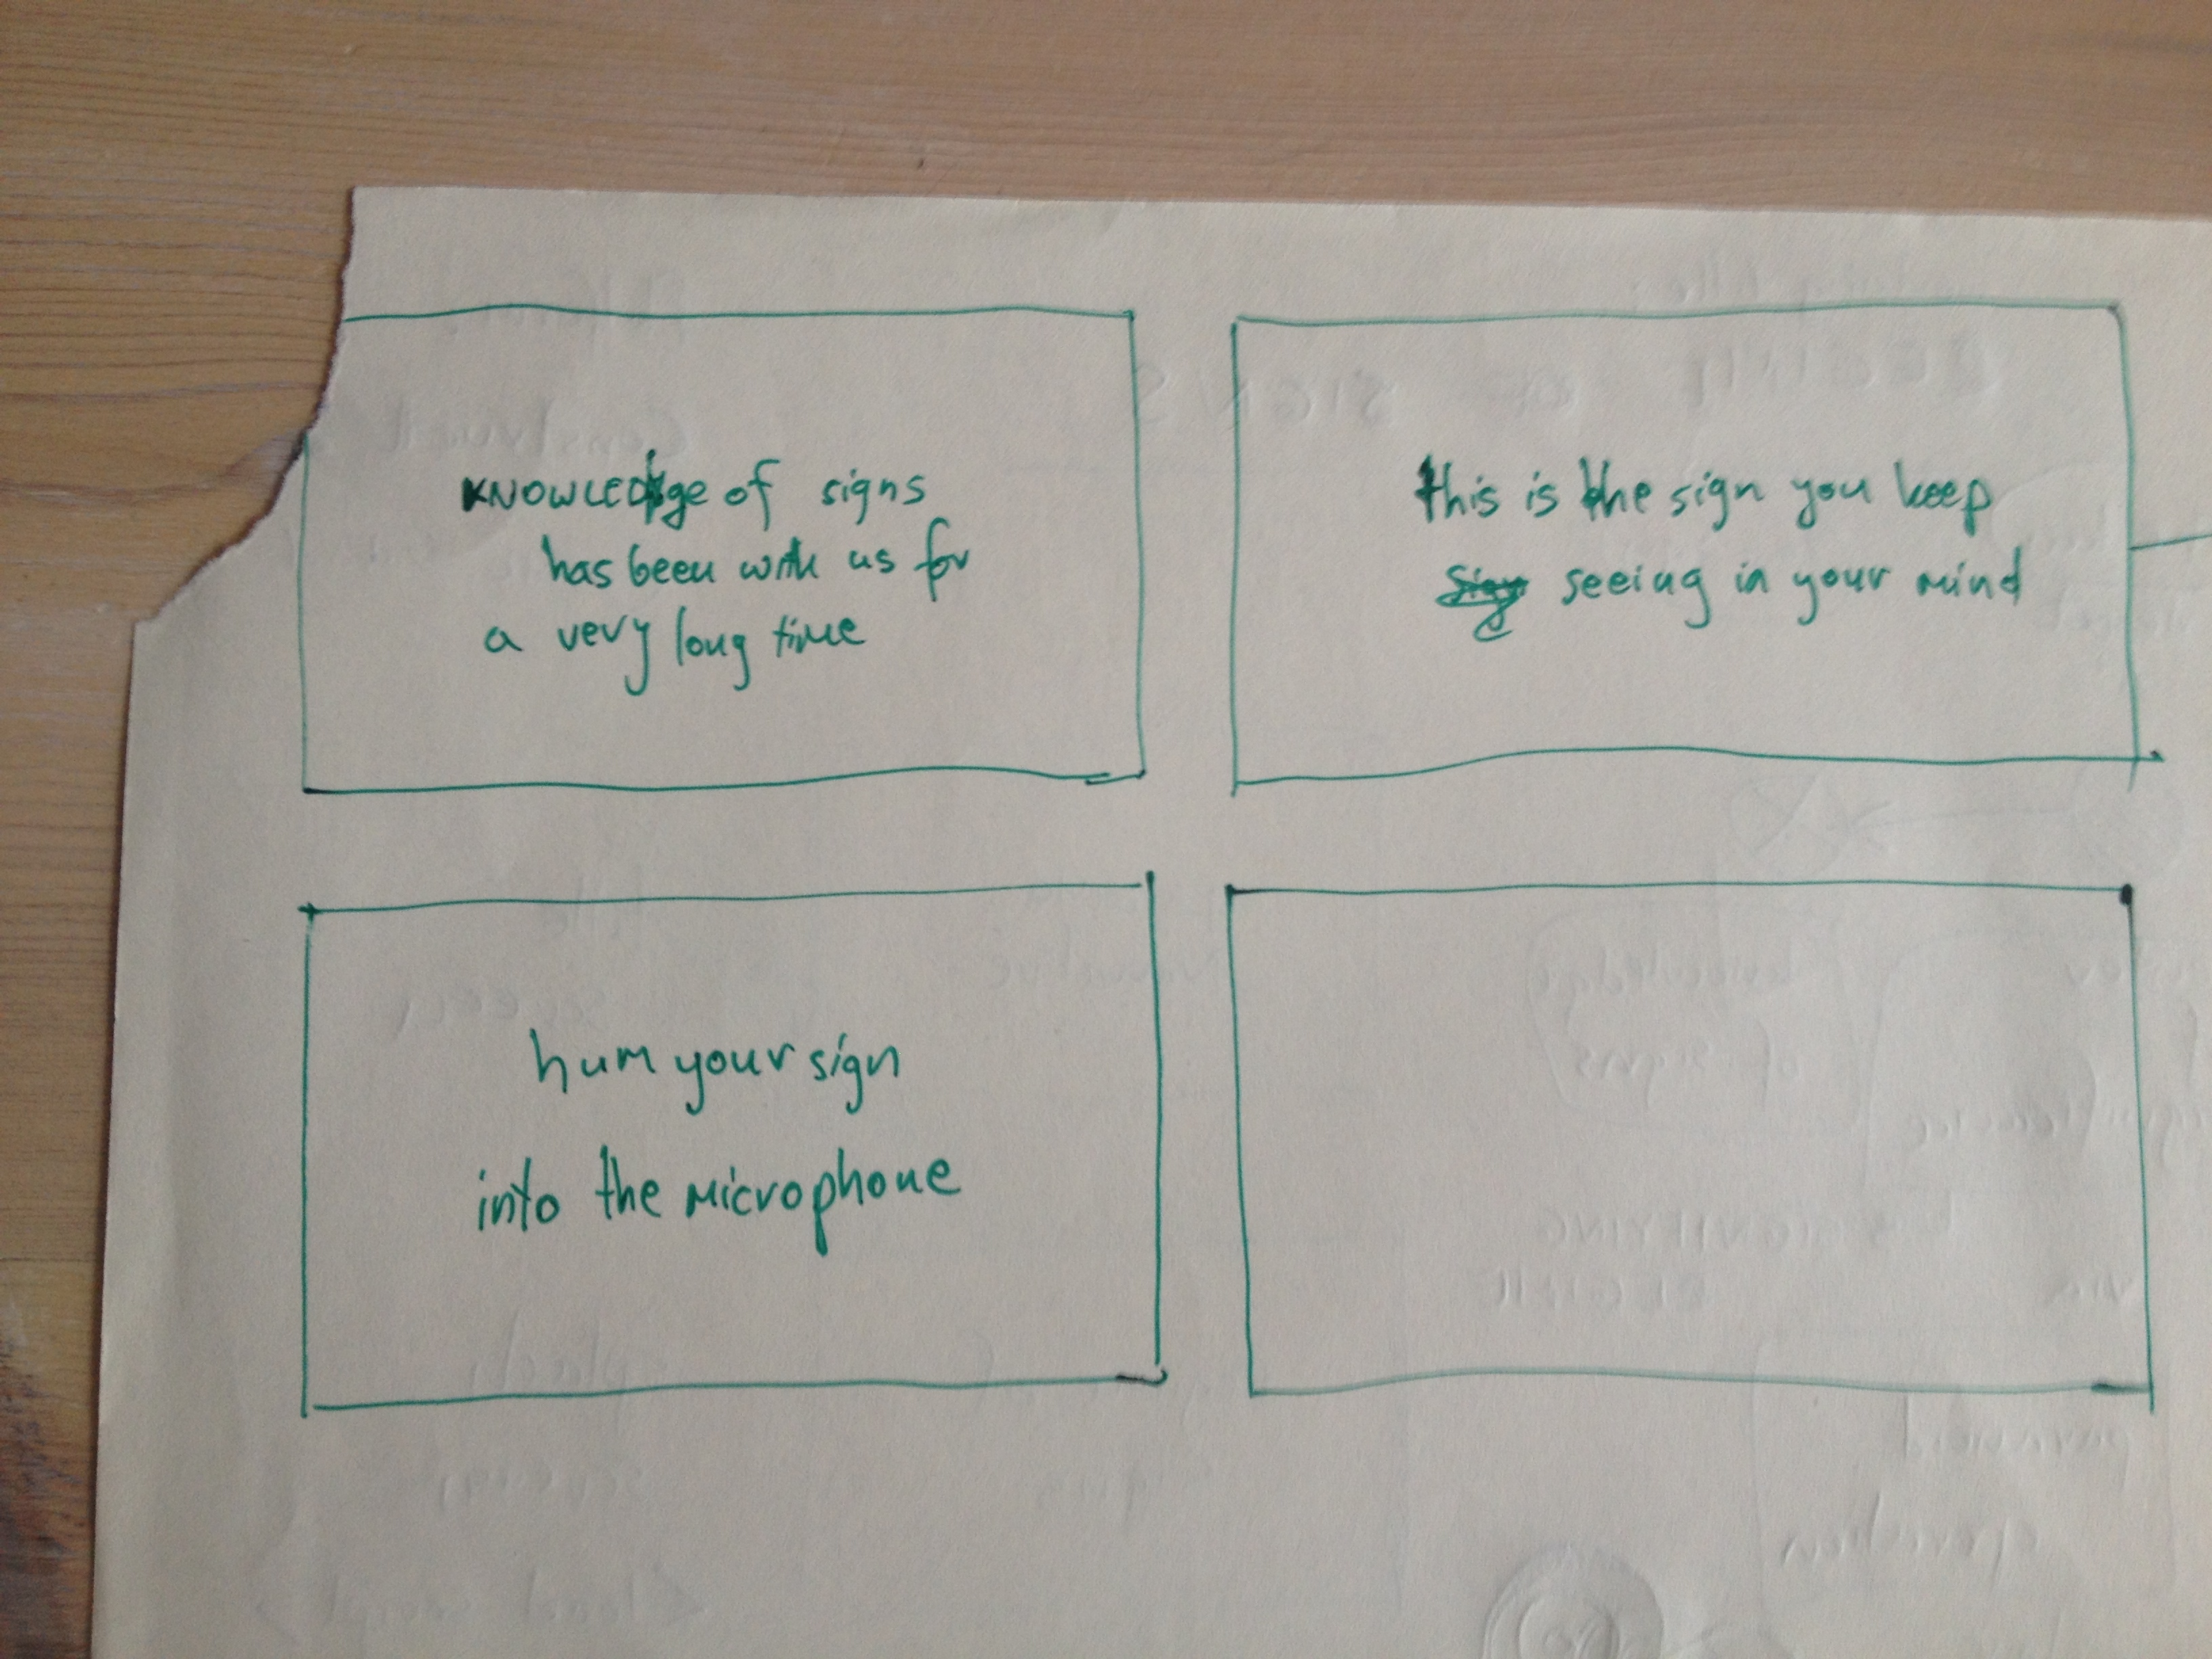 KNOWLEDge of signs
has been with us for
a very long time
this is the sign you keep
seeing in your mind
hum your sign
into the microphone